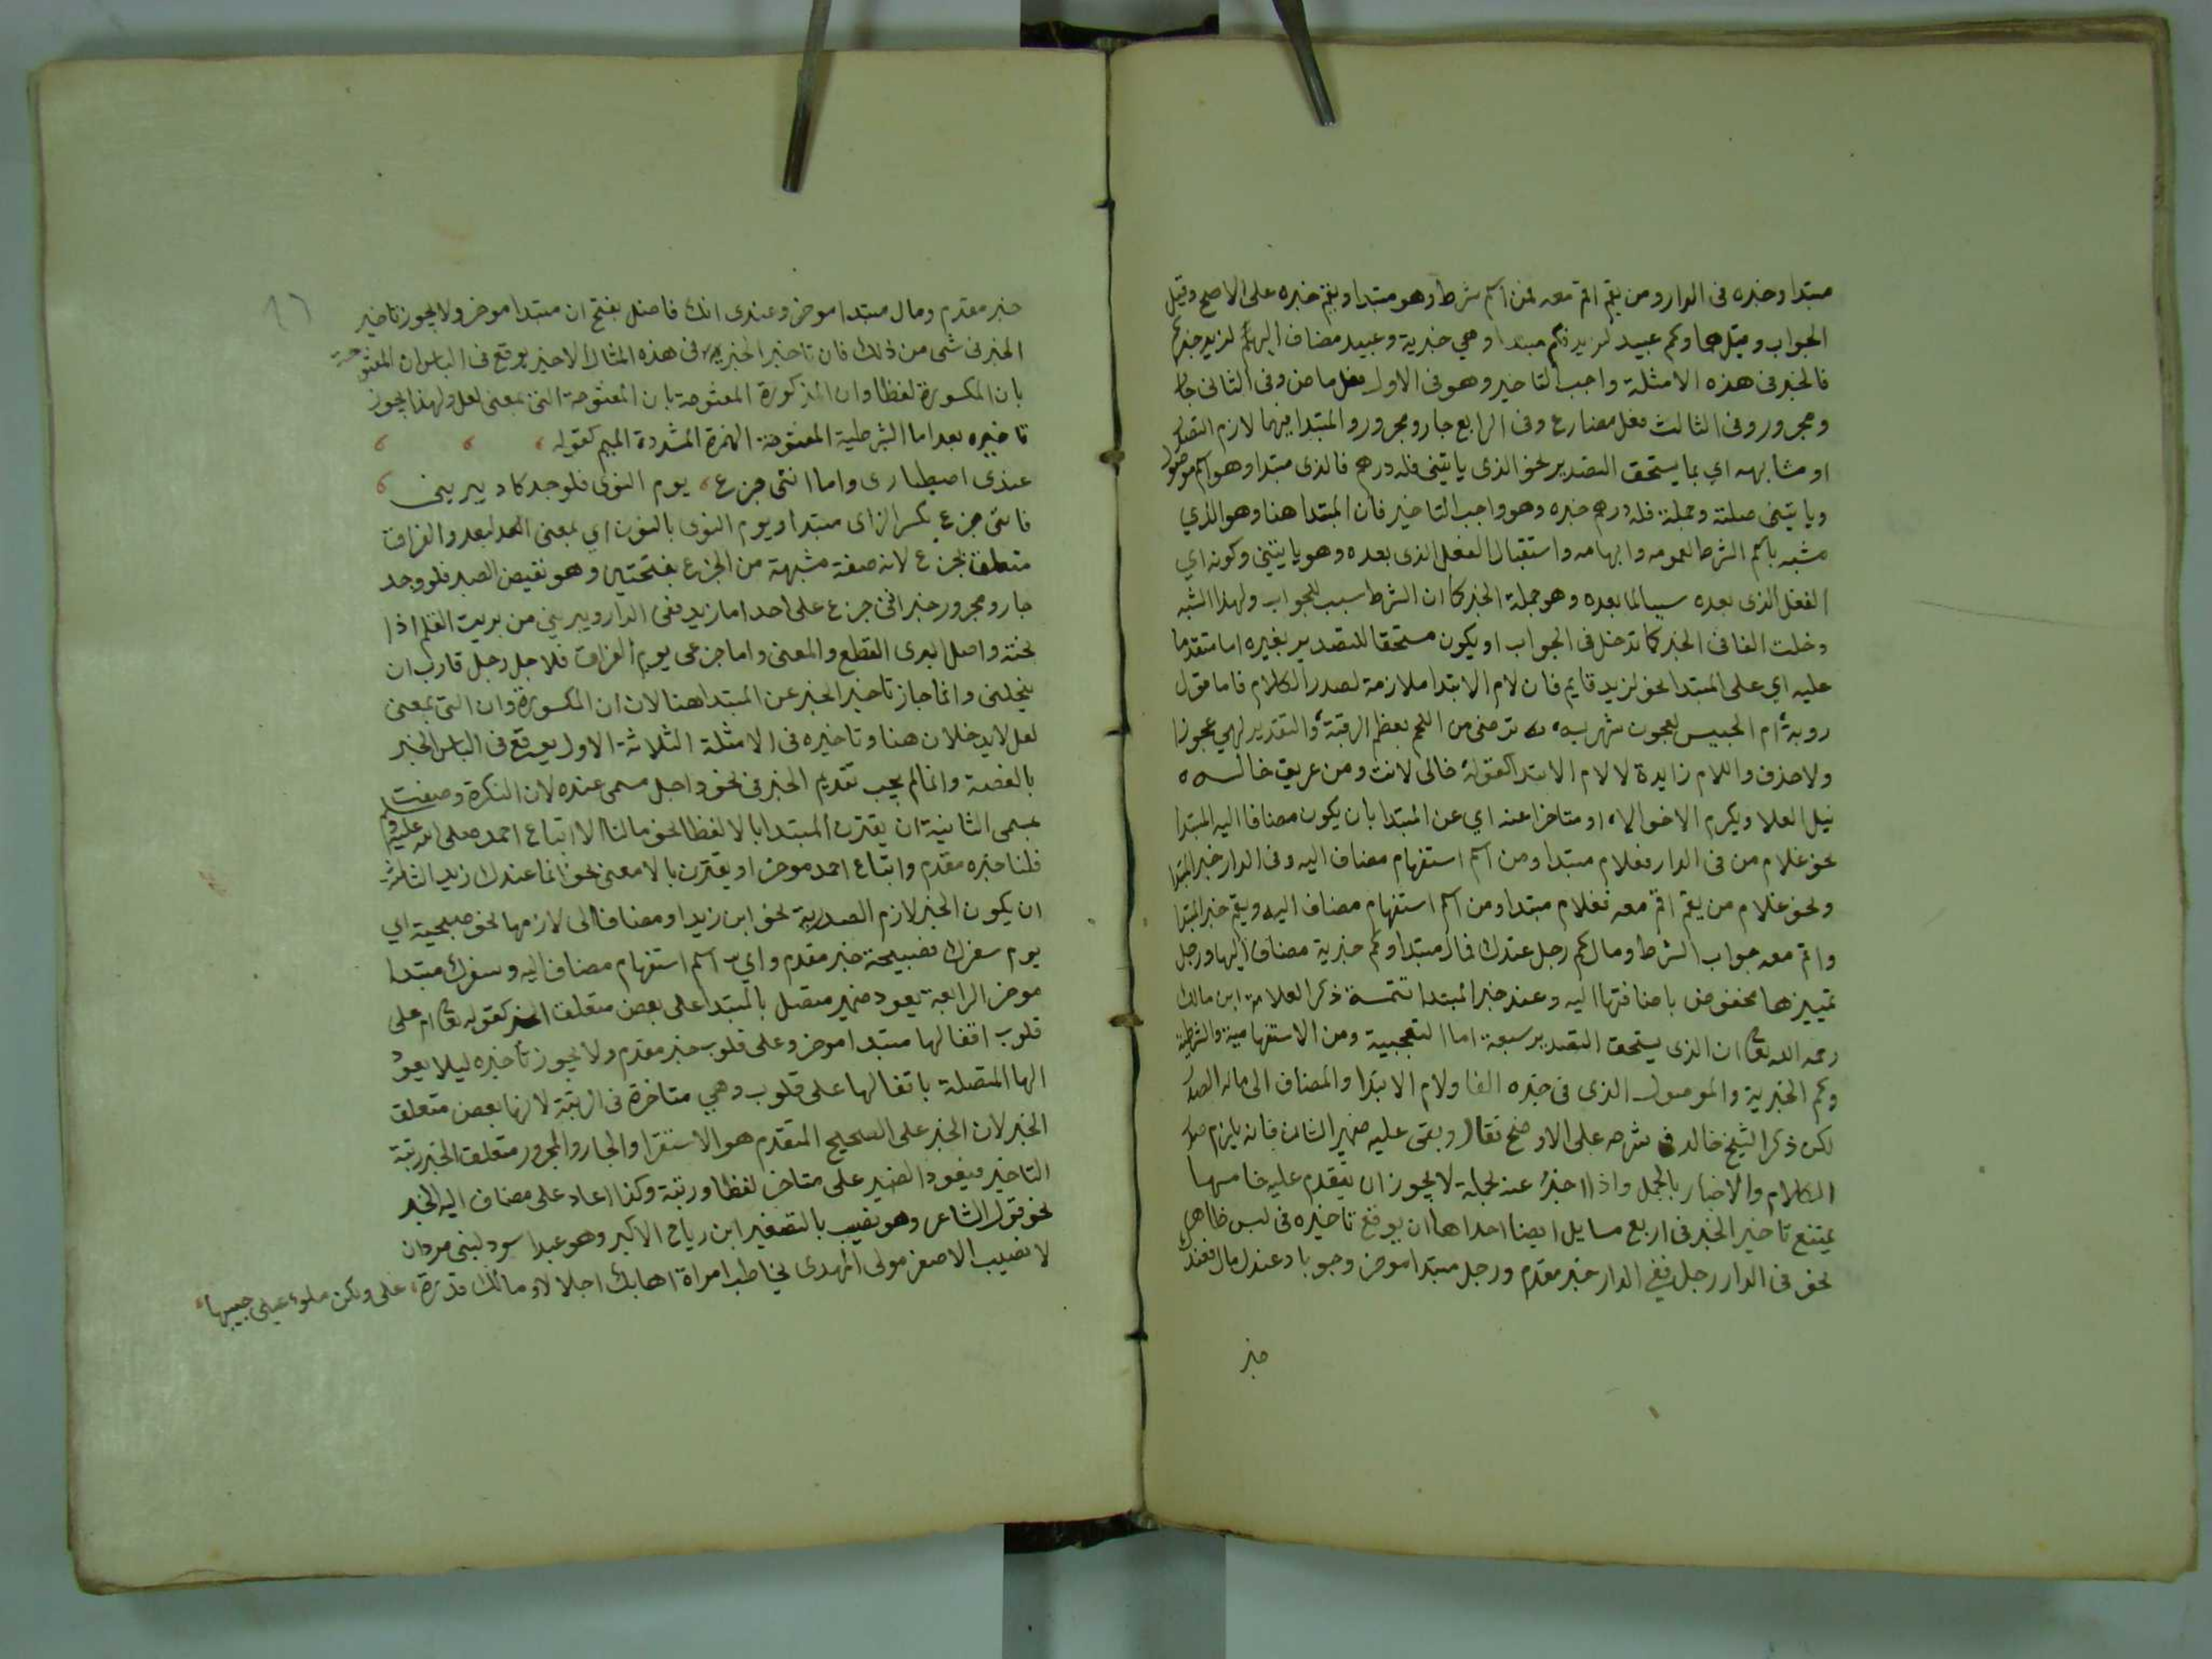 مبتدا وخبره فى الدار ومن يقم اقم معه فمن اسم شرط وهو مبتدا ويقم خبره على الاصح وقيل
الجواب وقيل هما وكم عبيد لزيد فكم مبتدا وهي خبرية وعبيد مضاف اليه لكم لزيد خبركم
فالخبر فى هذه الامثلة واجب التاخير وهو فى الاول فعل ماض وفى الثانى جار
ومجرور وفى الثالث فعل مضارع وفى الرابع جار ومجرور والمبتدا فيها لازم التصدر
او مشابهه اي بما يستحق التصدير نحو الذى ياتينى فله درهم فالذى مبتدا وهو اسم موصول
وياتينى صلته وجملة فله درهم خبره وهو واجب التاخير فان المبتدا هنا وهو الذي
مشبه باسم الشرط لعمومه وابهامه واستقبال الفعل الذى بعده وهو ياتينى وكونه اي
الفعل الذى بعده سببا لما بعده وهو جملة الخبر كما ان الشرط سبب للجواب ولهذا الشبه
دخلت الفا فى الخبر كما تدخل فى الجواب او يكون مستحقا للتصدير بغيره اما متقدما
عليه اي على المبتدا نحو لزيد قايم فان لام الابتدا ملازمة لصدر الكلام فاما قول
روبة ام الحبيس لعجوز شهربه ترضى من اللحم بعظم الرقبة والتقدير لهي عجوز
ولا حذف واللام زايدة لا لام الابتدا كقوله خالى لانت ومن عريف خاله
ينل العلا ويكرم الاخوالا او متاخرا عنه اي عن المبتدا بان يكون مضافا اليه المبتدا
نحو غلام من فى الدار فغلام مبتدا ومن اسم استفهام مضاف اليه وفى الدار خبر المبتدا
ونحو غلام من يقم اقم معه فغلام مبتدا ومن اسم استفهام مضاف اليه ويقم خبر المبتدا
واقم معه جواب الشرط ومال كم رجل عندك فمال مبتدا وكم خبرية مضاف اليها ورجل
تمييزها مخفوض باضافتها اليه وعند خبر المبتدا تتمسة ذكر العلامة ابن مالك
رحمه الله تعا ان الذى يستحق التصدير سبعة اما التعجبية ومن الاستفهامية والشرطية
وكم الخبرية والموصول الذى فى خبره الفا ولام الابتدا والمضاف الى ماله الصدر
لكن ذكر الشيخ خالد فى شرحه على الاوضح فقال وبقى عليه ضمير الشان فانه يلزم صدر
الكلام والاخبار بالجمل واذا اخبر عنه بجملة لا يجوز ان يتقدم عليه خامسها
يمتنع تاخير الخبر فى اربع مسايل ايضا احداها ان يوقع تاخيره فى لبس ظاهر
نحو فى الدار رجل ففى الدار خبر مقدم ورجل مبتدا موخر وجوبا وعندك مال فعندك
خبر
٩٦
خبر مقدم ومال مبتدا موخر وعندى انك فاضل بفتح ان مبتدا موخر ولا يجوز تاخير
الخبر فى شى من ذلك فان تاخير الخبر فى هذه المثال الاخير يوقع فى الباس ان المفتوحة
بان المكسورة لفظا وان المذكورة المفتوحة بان المفتوحة التى بمعنى لعل ولهذا يجوز
تاخيره بعد اما الشرطية المفتوحة الهمزة المشددة الميم كقوله
عندى اصطبارى واما انثى جزع يوم النوى فلوجد كاد يبرينى
فانثى جزع بكسر الزاى مبتدا ويوم النوى بالنون اي بمعنى البعد والفراق
متعلق بجزع لانه صفة مشبهة من الجزع بفتحتين وهو نقيض الصبر فلوجد
جار ومجرور خبر انثى جزع على احد اما زيد ففى الدار ويبرينى من بريت القلم اذا
نحته واصل البرى القطع والمعنى واما جزعى يوم الفراق فلاجل رجل قارب ان
ينحلنى وانما جاز تاخير الخبر عن المبتدا هنا لان ان المكسورة وان التى بمعنى
لعل لا يدخلان هنا وتاخيره فى الامثلة الثلاثة الاول يوقع فى الباس الخبر
بالصفة وانما لم يجب تقديم الخبر فى نحو واجل مسمى عنده لان النكرة وصفت
بمسمى الثانية ان يقترن المبتدا بالا لفظا نحو مالنا الا اتباع احمد صلى الله عليه وسلم
فلنا خبره مقدم واتباع احمد موخر او يقترن بالا معنى نحو انما عندك زيد الثالثة
ان يكون الخبر لازم الصدرية نحو اين زيد او مضافا الى لازمها نحو صبيحة اي
يوم سفرك فصبيحة خبر مقدم واي اسم استفهام مضاف اليه وسفرك مبتدا
موخر الرابعة يعود ضمير متصل بالمبتدا على بعض متعلق الخبر كقوله تعا ام على
قلوب اقفالها مبتدا موخر وعلى قلوب خبر مقدم ولا يجوز تاخيره ليلا يعود
الها المتصلة باقفالها على قلوب وهي متاخرة فى الرتبة لانها بعض متعلق
الخبر لان الخبر على الصحيح المتقدم هو الاستقرار والجار والمجرور متعلق الخبر رتبة
التاخير فيعود الضمير على متاخر لفظا ورتبة وكذا اعاد على مضاف اليه الخبر
نحو قول الشاعر وهو نصيب بالتصغير ابن رياح الاكبر وهو عبد اسود لبنى مروان
لا نصيب الاصغر مولى المهدى يخاطب امراة اهابك اجلالا وما بك قدرة على ولكن ملوء عينى حبيبها